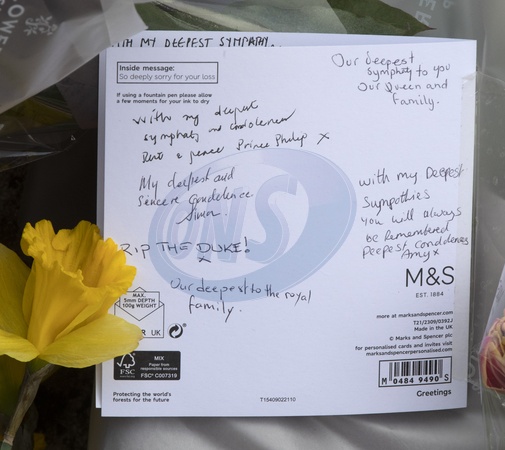 WITH MY DEEPEST SYMPATHY.
Inside message:
So deeply sorry for your loss
If using a fountain pen please allow
a few moments for your ink to dry
Our deepest
Sympathy to you
Our Queen and
family.
with my deepest
sympathy and condolences
Rest peace Prince Philip x
My deepest and
Sincere Condolence
Simon.
with my Deepest
Sympothies
you will always
be Remembered
Deepest Condolences
Amyx
R.I.P THE DUKE!
x
Our deepest to the royal
family.
NS
M&S
EST. 1884
more at marksandspencer.com
T21/2300/0392J
Made in the UK
© Marks and Spencer plc
for personalised cards and invites visit
marksandspencerpersonalised.com
MAX.
5mm DEPTH
100g WEIGHT
UK
FSC
MIX
Paper from
responsible sources
FSC® C007319
M 0484 9490 S
Protecting the world's
forests for the future
T15409022110
Greetings